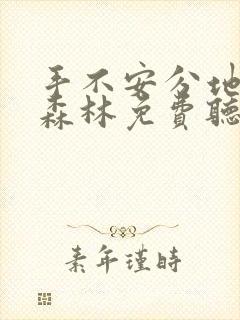 手不安分地
森林免费聽
素年瑾時